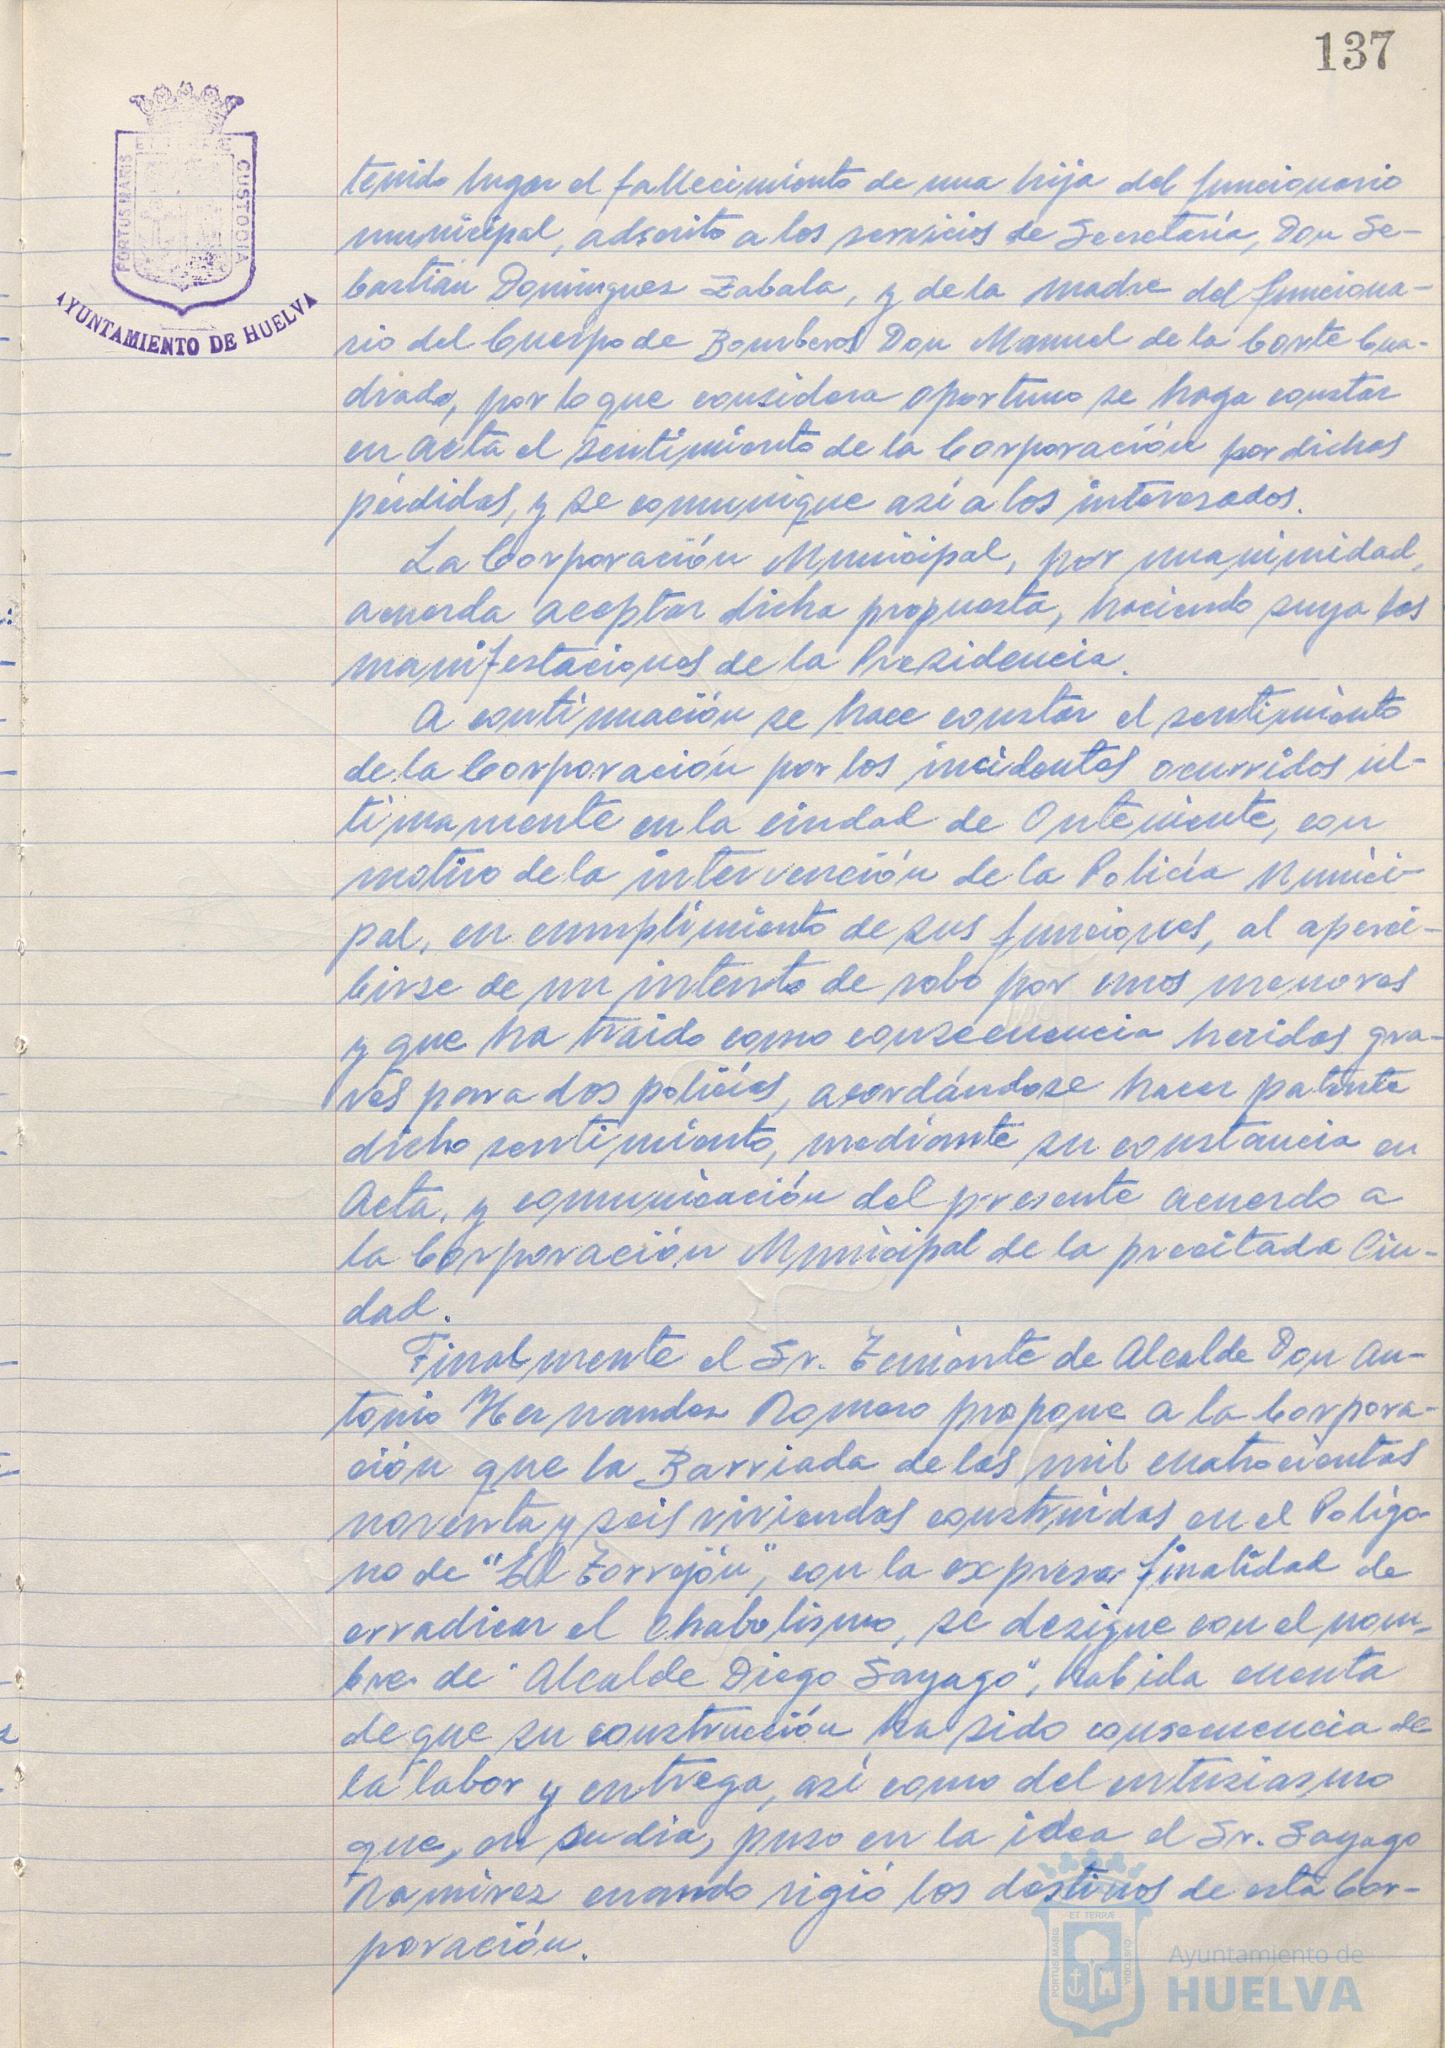 137
PORTUS MARIS
ET TERRAE
CUSTODIA
AYUNTAMIENTO DE HUELVA
tenido lugar el fallecimiento de una hija del funcionario
municipal, adscrito a los servicios de Secretaría, Don Se-
bastián Domínguez Zabala, y de la madre del funciona-
rio del Cuerpo de Bomberos Don Manuel de la Corte Cua-
drado, por lo que considera oportuno se haga constar
en Acta el sentimiento de la Corporación por dichas
pérdidas, y se comunique así a los interesados.
La Corporación Municipal, por unanimidad,
acuerda aceptar dicha propuesta, haciendo suya las
manifestaciones de la Presidencia.
A continuación se hace constar el sentimiento
de la Corporación por los incidentes ocurridos úl-
timamente en la ciudad de Onteniente, con
motivo de la intervención de la Policía Munici-
pal, en cumplimiento de sus funciones, al aperci-
birse de un intento de robo por unos menores
y que ha traido como consecuencia heridas gra-
ves para dos policías, acordándose hacer patente
dicho sentimiento, mediante su constancia en
Acta, y comunicación del presente acuerdo a
la Corporación Municipal de la precitada Ciu-
dad.
Finalmente el Sr. Teniente de Alcalde Don An-
tonio Hernandez Romero propone a la Corpora-
ción que la Barriada de las mil cuatrocientas
noventa y seis viviendas construidas en el Polígo-
no de "El Torrejón", con la expresa finalidad de
erradicar el chabolismo, se designe con el nom-
bre de "Alcalde Diego Sayago", habida cuenta
de que su construcción ha sido consecuencia de
la labor y entrega, así como del entusiasmo
que, en su dia, puso en la idea el Sr. Sayago
Ramírez cuando rigió los destinos de esta Cor-
poración.
PORTUS MARIS
ET TERRÆ
CUSTODIA
Ayuntamiento de
HUELVA